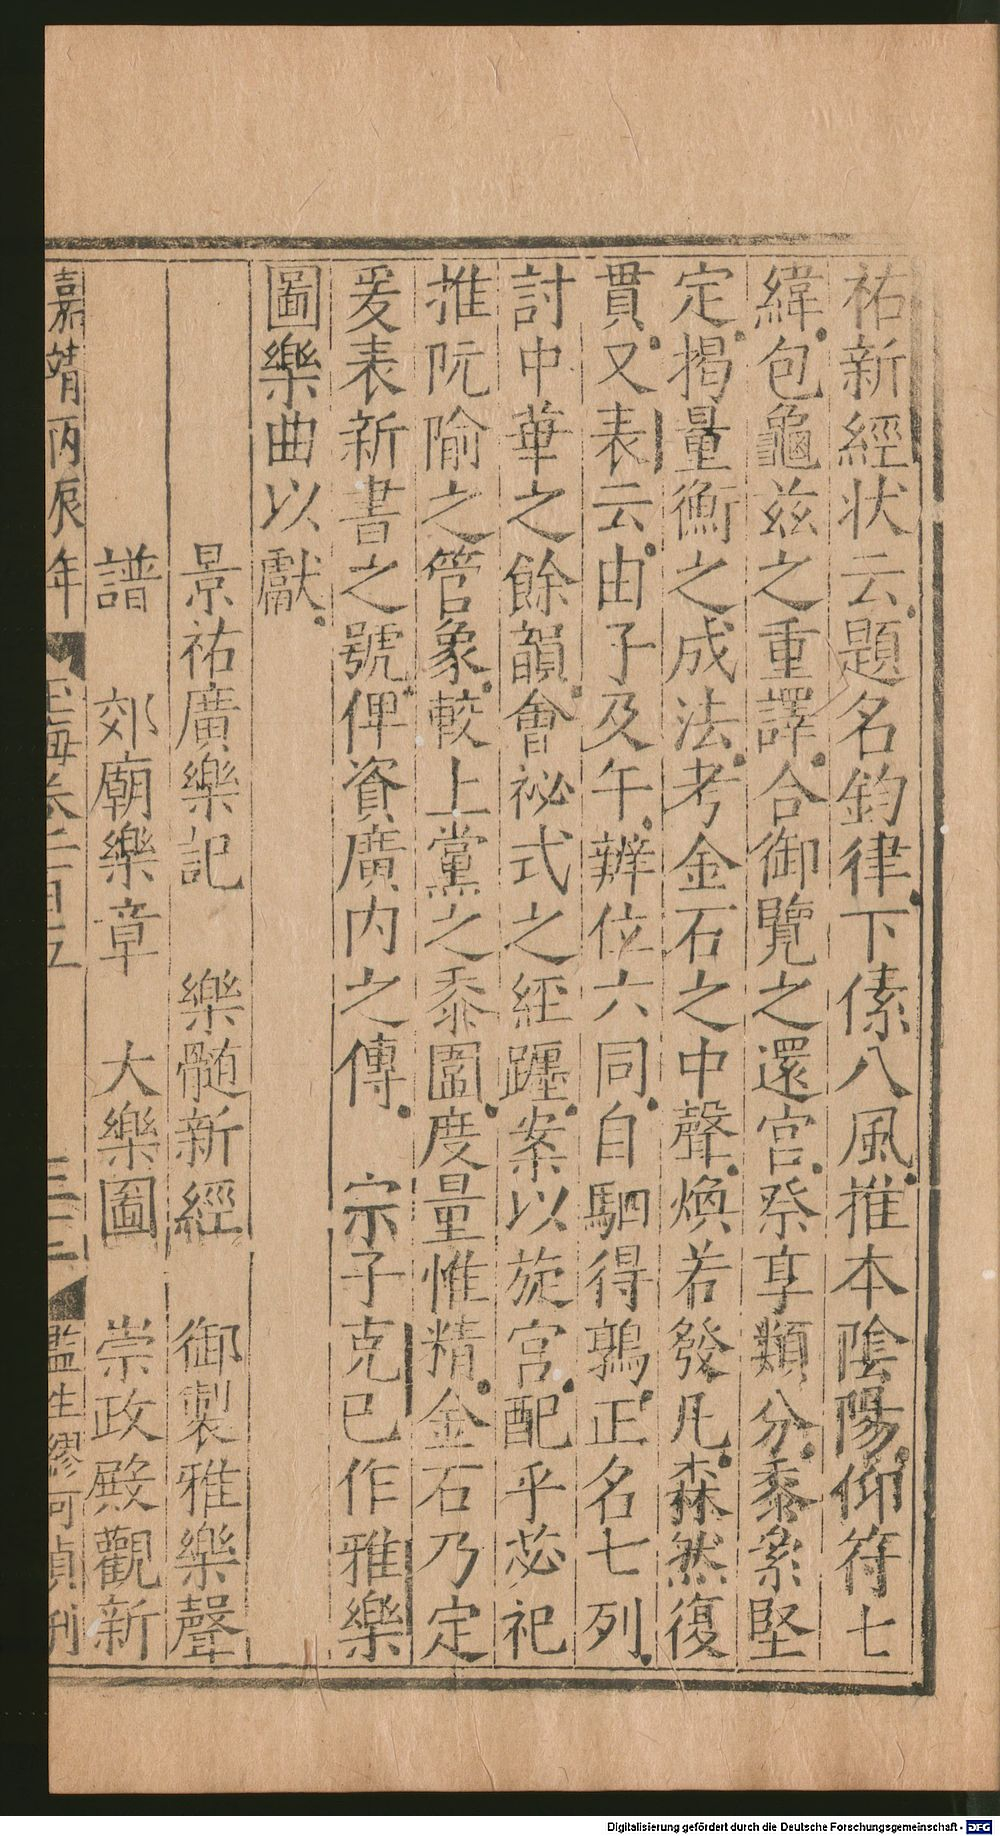 祐新經状云題名鈞律下傃八風推本陰陽仰符七
緯包龜兹之重譯合御覽之還宮祭享類分黍絫堅
定揭量衡之成法考金石之中聲煥若發凡森然復
貫又表云由子及午辨位六同自駟得鶉正名七列
討中華之餘韻會祕式之經躔案以旋宮配乎苾祀
推阮隃之管象較上黨之黍圖度量惟精金石乃定
爰表新書之號俾資廣内之傳 宗子克已作雅樂
圖樂曲以獻
景祐廣樂記 樂髄新經 御製雅樂聲
譜 郊廟樂章 大樂圖 崇政殿觀新
嘉靖丙辰年 玉海卷一百五 三十二 監生繆可貞刊
Digitalisierung gefördert durch die Deutsche Forschungsgemeinschaft - DFG